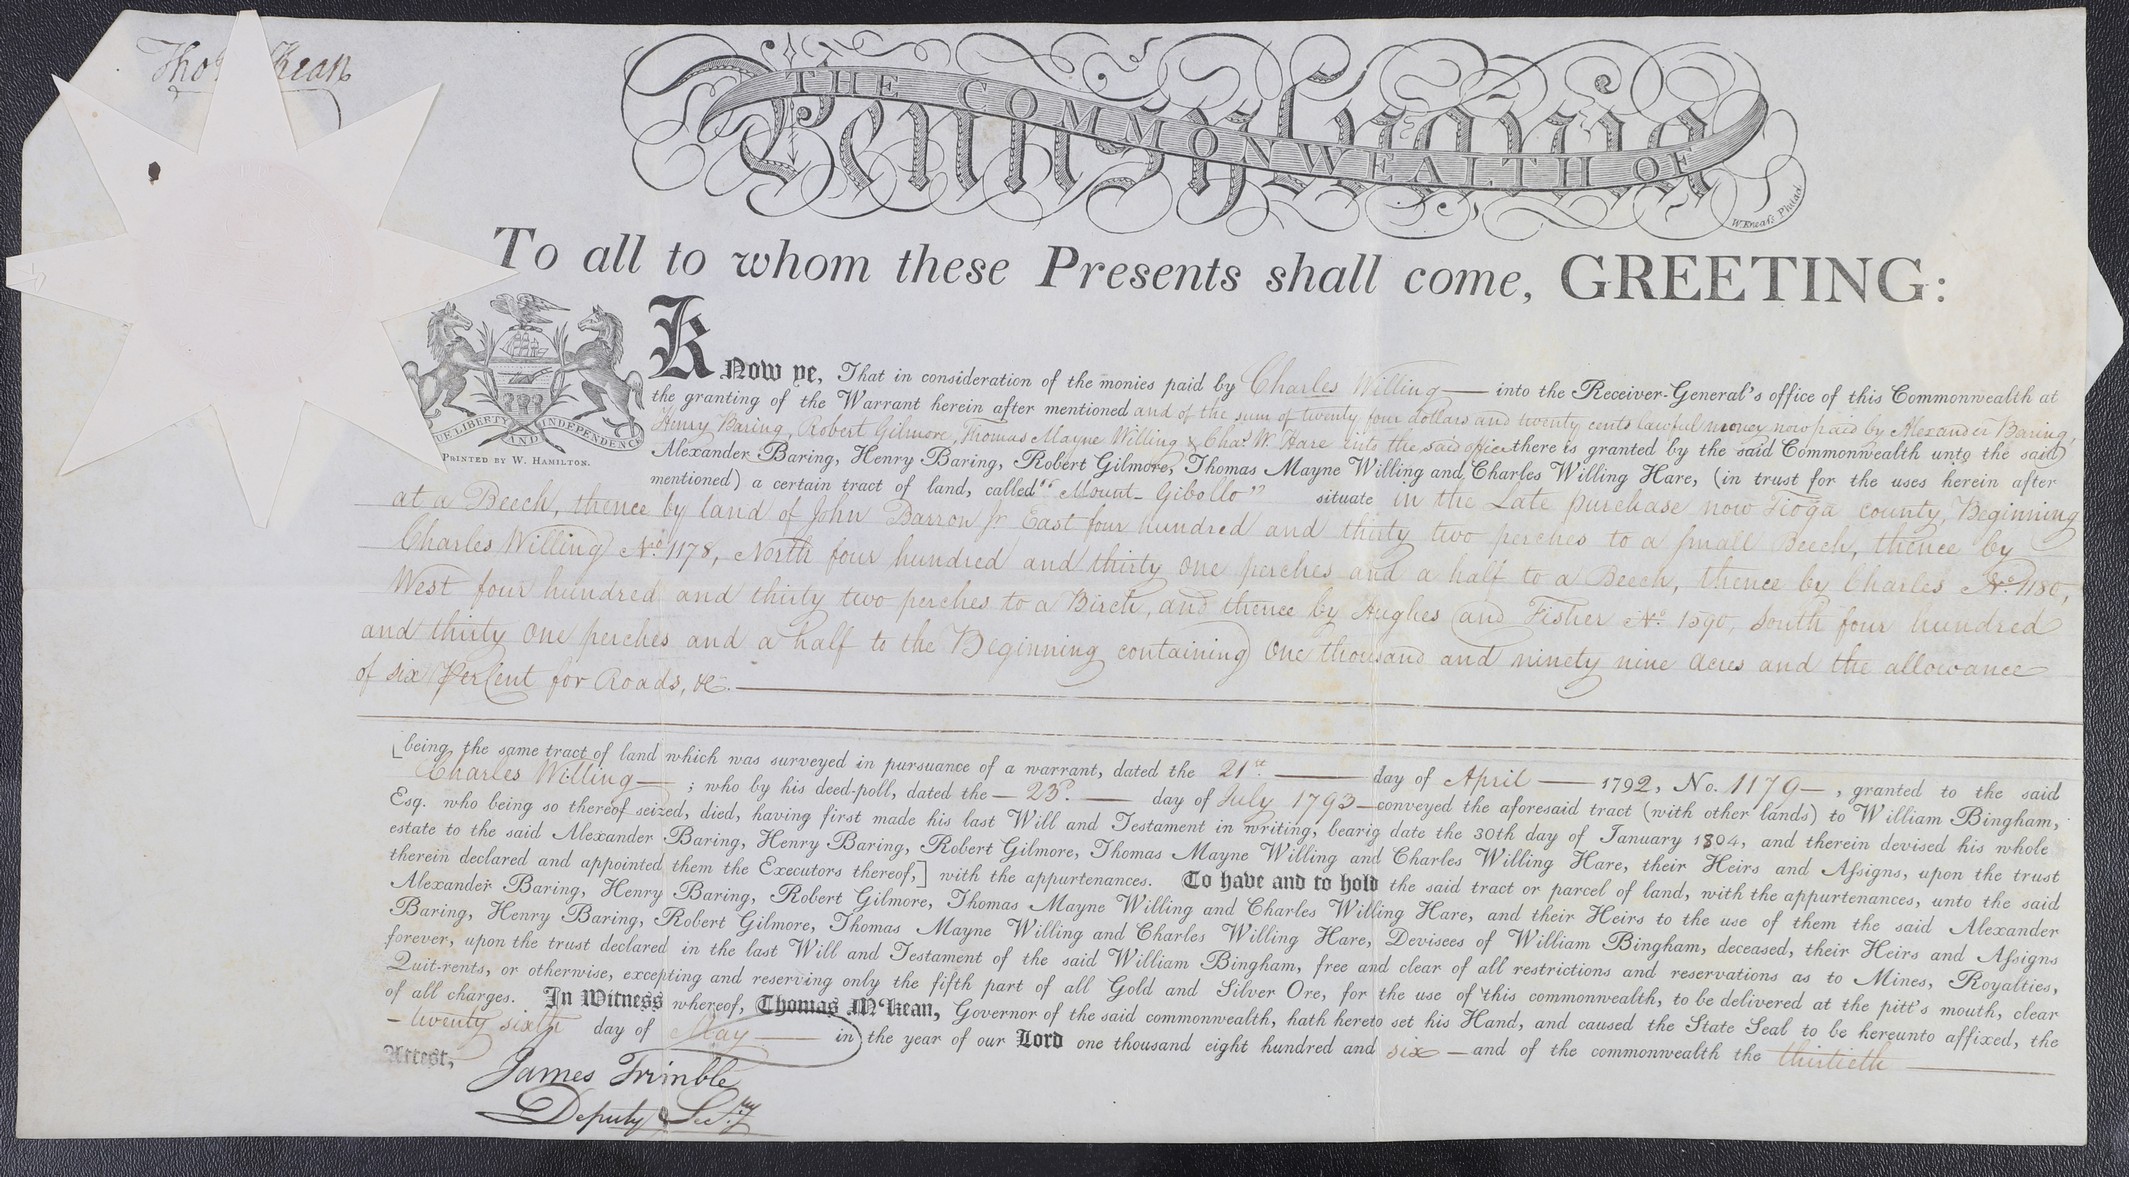 Tho Kean
THE COMMONWEALTH OF
Pennsylvania
W. Kneass Philad.
To all to whom these Presents shall come, GREETING:
UE LIBERTY AND INDEPENDENCE
PRINTED BY W. HAMILTON.
Know ye, That in consideration of the monies paid by Charles Willing — into the Receiver-General's office of this Commonwealth at
the granting of the Warrant herein after mentioned and of the sum of twenty four dollars and twenty cents lawful money now paid by Alexander Baring,
Henry Baring, Robert Gilmore, Thomas Mayne Willing & Chas. W. Hare into the said office there is granted by the said Commonwealth unto the said
Alexander Baring, Henry Baring, Robert Gilmore, Thomas Mayne Willing and Charles Willing Hare, (in trust for the uses herein after
mentioned) a certain tract of land, called "Mount Gibollo" situate in the Late purchase now Tioga county, Beginning
at a Beech, thence by land of John Barron Jr East four hundred and thirty two perches to a small Beech, thence by
Charles Willing No. 1178, North four hundred and thirty one perches and a half to a Beech, thence by Charles No. 1180,
West four hundred and thirty two perches to a Birch, and thence by Hughes and Fisher No. 1590, South four hundred
and thirty one perches and a half to the Beginning containing One thousand and ninety nine acres and the allowance
of six PerCent for Roads, &c. —
[being the same tract of land which was surveyed in pursuance of a warrant, dated the 21st. — day of April — 1792, No. 1179 —, granted to the said
Charles Willing — ; who by his deed-poll, dated the — 23d. — day of July 1793 — conveyed the aforesaid tract (with other lands) to William Bingham,
Esq. who being so thereof seized, died, having first made his last Will and Testament in writing, bearig date the 30th day of January 1804, and therein devised his whole
estate to the said Alexander Baring, Henry Baring, Robert Gilmore, Thomas Mayne Willing and Charles Willing Hare, their Heirs and Assigns, upon the trust
therein declared and appointed them the Executors thereof,] with the appurtenances. To have and to hold the said tract or parcel of land, with the appurtenances, unto the said
Alexander Baring, Henry Baring, Robert Gilmore, Thomas Mayne Willing and Charles Willing Hare, and their Heirs to the use of them the said Alexander
Baring, Henry Baring, Robert Gilmore, Thomas Mayne Willing and Charles Willing Hare, Devisees of William Bingham, deceased, their Heirs and Assigns
forever, upon the trust declared in the last Will and Testament of the said William Bingham, free and clear of all restrictions and reservations as to Mines, Royalties,
Quit-rents, or otherwise, excepting and reserving only the fifth part of all Gold and Silver Ore, for the use of this commonwealth, to be delivered at the pitt's mouth, clear
of all charges. In Witness whereof, Thomas M'Kean, Governor of the said commonwealth, hath hereto set his Hand, and caused the State Seal to be hereunto affixed, the
— twenty sixth day of May — in the year of our Lord one thousand eight hundred and six — and of the commonwealth the thirtieth —
Attest,
James Trimble
Deputy Secry